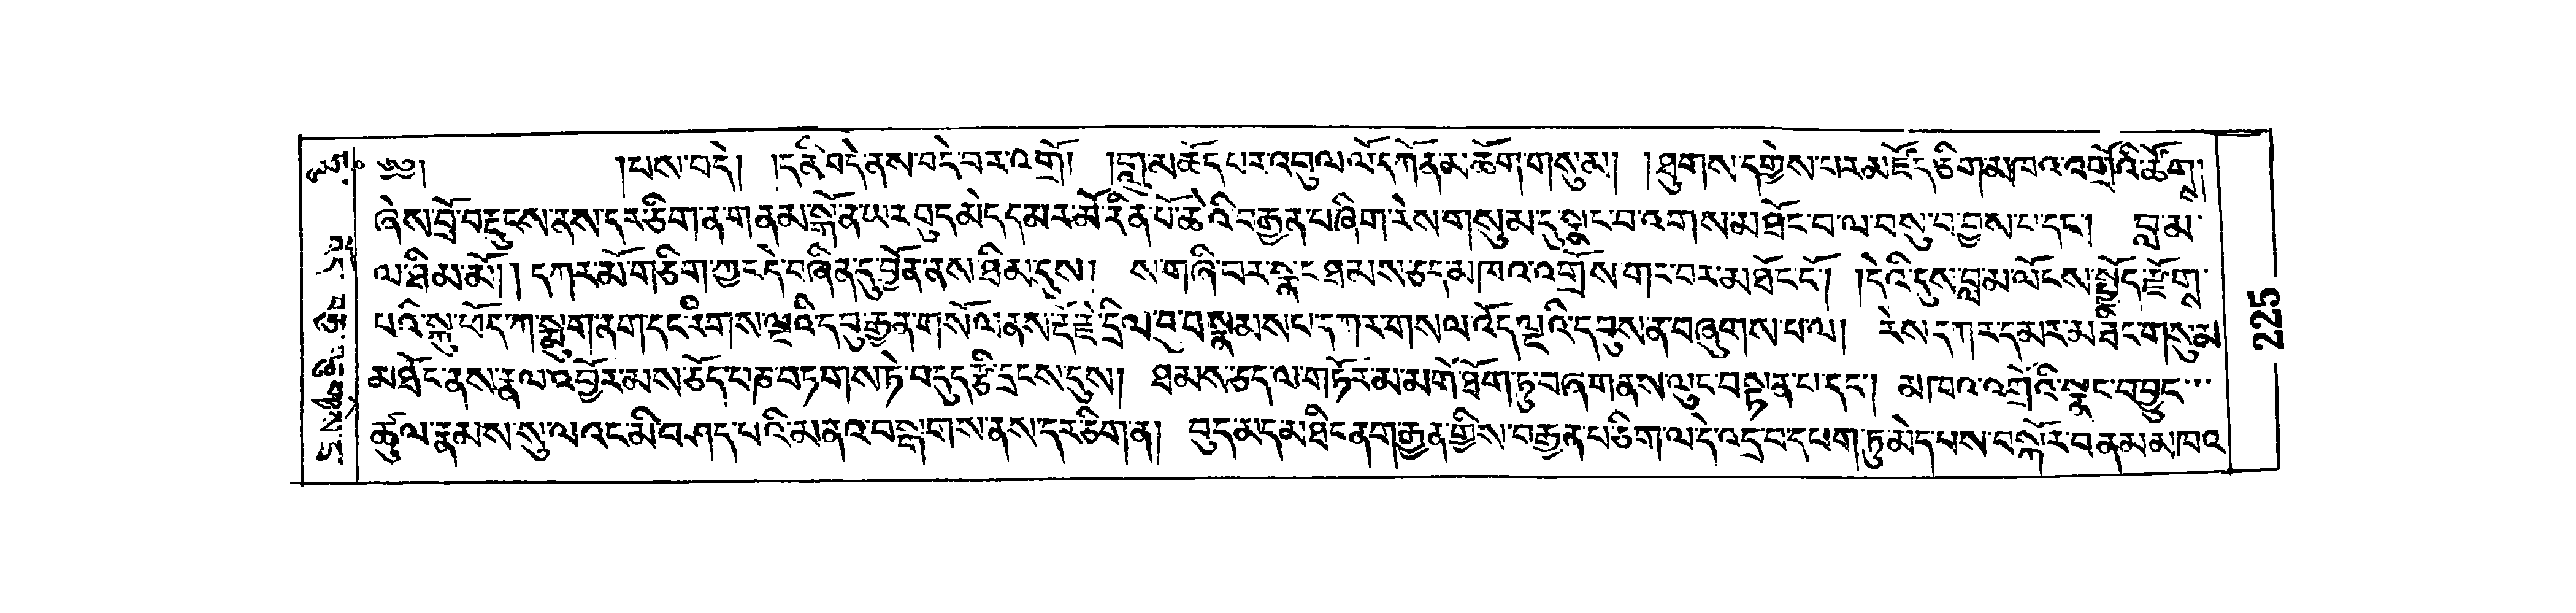 ༄༅། །པས་བདེ། །ད་ནི་བདེ་ནས་བདེ་བར་འགྲོ། །བླ་མ་མཆོད་པར་འབུལ་ལོ་དཀོན་མཆོག་གསུམ། །ཐུགས་དགྱེས་པར་མཛོད་ཅིག་མཁའ་འགྲོའི་ཚོགས།
ཞེས་བྲོ་བརྡུངས་ནས་དར་ཅིག་ན་གནམ་སྔོན་ཡར་བུད་མེད་དམར་མོ་རིན་པོ་ཆེའི་བརྒྱན་པ་ཞིག་རེས་གསུམ་དུ་སྣང་བ་འགས་མཐོང་བ་ལ་བསུ་བ་བྱས་པ་དང་། བླ་མ་
ལ་ཐིམ་མོ།། དཀར་མོ་གཅིག་ཀྱང་དེ་བཞིན་དུ་བྱོན་ནས་ཐིམ་དུས། ས་གཞི་བར་སྣང་ཐམས་ཅད་མཁའ་འགྲོས་གང་བར་མཐོང་ངོ་། །དེའི་དུས་བླ་མ་ལོངས་སྤྱོད་རྫོགས་
པའི་སྐུ་ཕོད་ཀ་སྨུག་ནག་དང་རིགས་ལྔའི་དབུ་རྒྱན་གསོལ་ནས་རྡོ་རྗེ་དྲིལ་བུ་བསྣམས་པ་དཀར་གསལ་འོད་ལྔའི་དབུས་ན་བཞུགས་པ་ལ། རེས་དཀར་དམར་མཐིང་གསུམ་
མཐོང་ནས་རྣལ་འབྱོར་མས་ཅོད་པཎ་བཏགས་ཏེ་བདུད་རྩི་དྲངས་དུས། ཐམས་ཅད་ལ་གཏོར་མ་མགོ་ཐོག་ཏུ་བཞག་ནས་ལུང་བསྟན་པ་དང་། མཁའ་འགྲོའི་སྣང་བ་བྱུང་
ཚུལ་རྣམས་སུ་ལའང་མི་བཤད་པའི་མནའ་བསྒྲགས་ནས་དར་ཅིག་ན། བུད་མེད་མཐིང་ནག་རྒྱན་གྱིས་བརྒྱན་པ་ཅིག་ལ་དེ་འདྲ་བ་དཔག་ཏུ་མེད་པས་བསྐོར་བ་ནམ་མཁའ